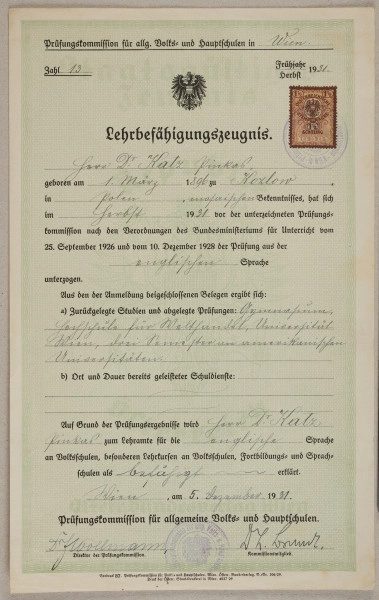 Prüfungskommission für allg. Volks- und Hauptschulen in Wien.
Zahl 13
Frühjahr
Herbst 1931.
Lehrbefähigungszeugnis.
Herr Dr. Katz Pinkas,
geboren am 1. März 1896 zu Kozlow,
in Polen, mosaischen Bekenntnisses, hat sich
im Herbst 1931 vor der unterzeichneten Prüfungs-
kommission nach den Verordnungen des Bundesministeriums für Unterricht vom
25. September 1926 und vom 10. Dezember 1928 der Prüfung aus der
englischen Sprache
unterzogen.
Aus den der Anmeldung beigeschlossenen Belegen ergibt sich:
a) Zurückgelegte Studien und abgelegte Prüfungen: Gymnasium,
Hochschule für Welthandel, Universität
Wien, drei Semester an amerikanischen
Universitäten
b) Ort und Dauer bereits geleisteter Schuldienste:
Auf Grund der Prüfungsergebnisse wird Herr Dr. Katz
Pinkas zum Lehramte für die englische Sprache
an Volksschulen, besonderen Lehrkursen an Volksschulen, Fortbildungs- und Sprach-
schulen als befähigt erklärt.
Wien, am 5. Dezember 1931.
Prüfungskommission für allgemeine Volks- und Hauptschulen.
Direktor der Prüfungskommission.
Kommissionsmitglied.